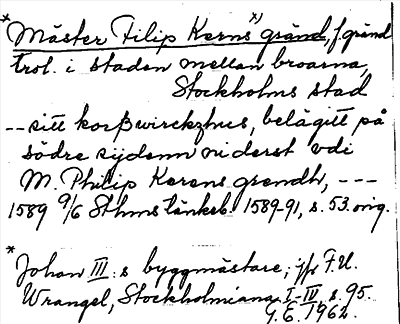 * Mäster Filip Kerns *) gränd, f. gränd
trol. i staden mellan broarna,
Stockholms stad
--- sitt korßwirckzhus, belägitt på
södre sijdenn niderst vdi
M. Philip Kerens grendh, ---
1589 9/6 Sthms tänkeb. 1589-91, s. 53. orig.
* Johan III:s byggmästare, jfr F.U.
Wrangel, Stockholmiana I-IV, s. 95.
G.E. 1962.